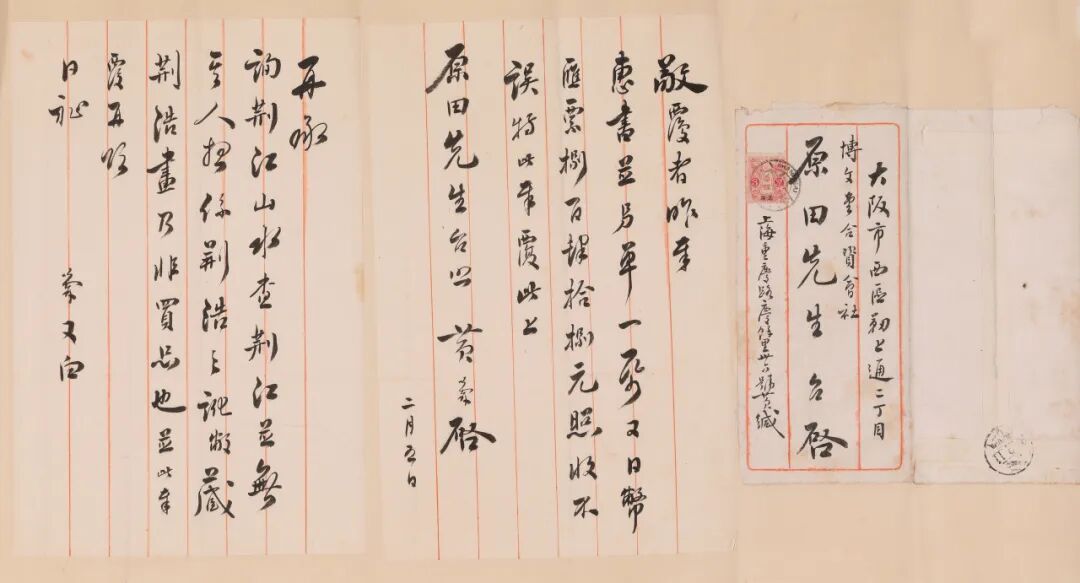 大阪市西區靱上通二丁目
博文堂合資會社
原田先生台啓
上海重慶路慶餘里廿六號黃緘
敬覆者昨奉
惠書並另單一帋又日幣
匯票捌百肆拾捌元照收不
誤特此奉覆此上
原田先生台照 黃啓
二月五日
再承
詢荆江山水查荆江並無
其人想係荆浩之訛敝藏
荆浩畫乃非買品也並此奉
覆再頌
日祉
又白